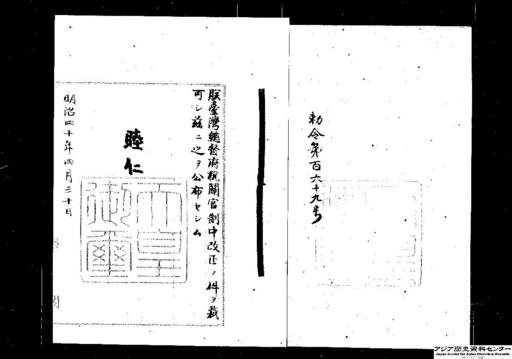 勅令第百六十九号
朕臺灣總督府税關官制中改正ノ件ヲ裁
可シ茲ニ之ヲ公布セシム
睦仁
天皇御璽
明治四十年四月三十日
アジア歴史資料センター
Japan Center for Asian Historical Records